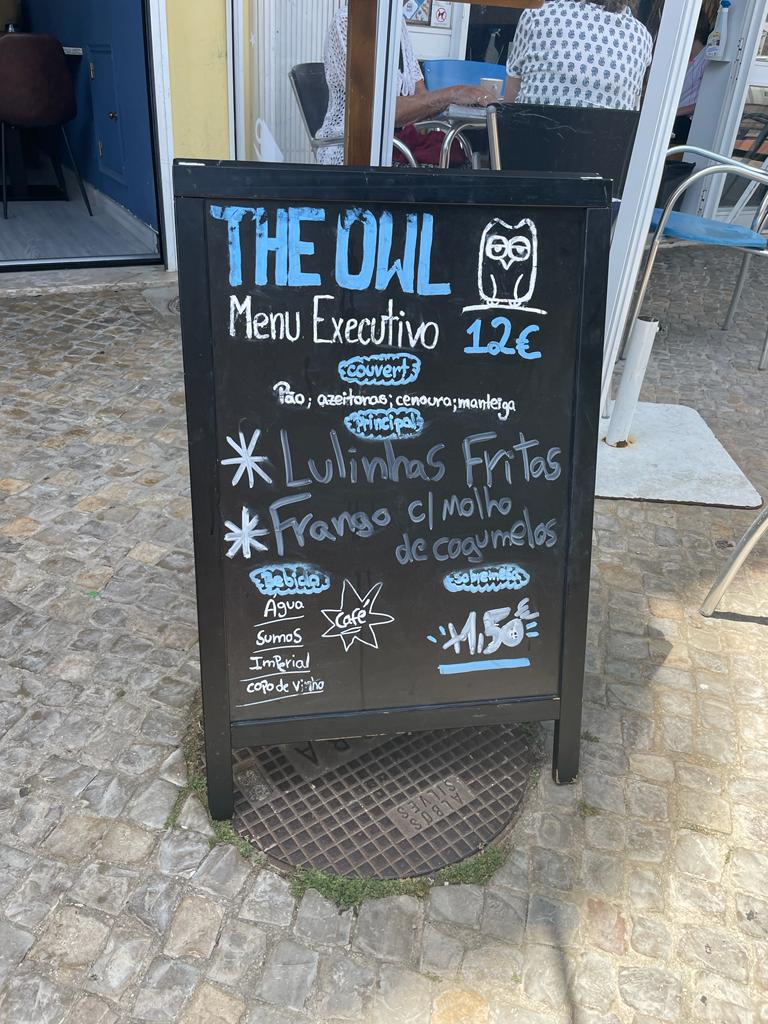 THE OWL
Menu Executivo
12€
couvert
Pão; azeitonas; cenoura; manteiga
principal
* Lulinhas Fritas
* Frango c/ Molho
de cogumelos
Bebida
Água
Sumos
Imperial
copo de vinho
Café
sobremesa
+1,50€
ALBOS
SILVES